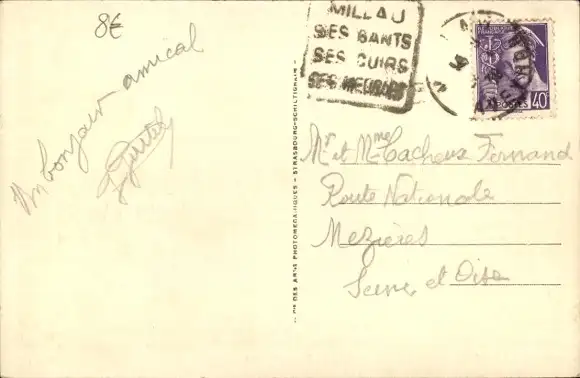 8€
Un bonjour amical
MILLAU
SES GANTS
SES CUIRS
SES MEGISS
POSTES 40c
Cie DES ARTS PHOTOMECANIQUES - STRASBOURG-SCHILTIGHEIM -
Mr et Mme Cacheux Fernand
Route Nationale
Mezières
Seine et Oise